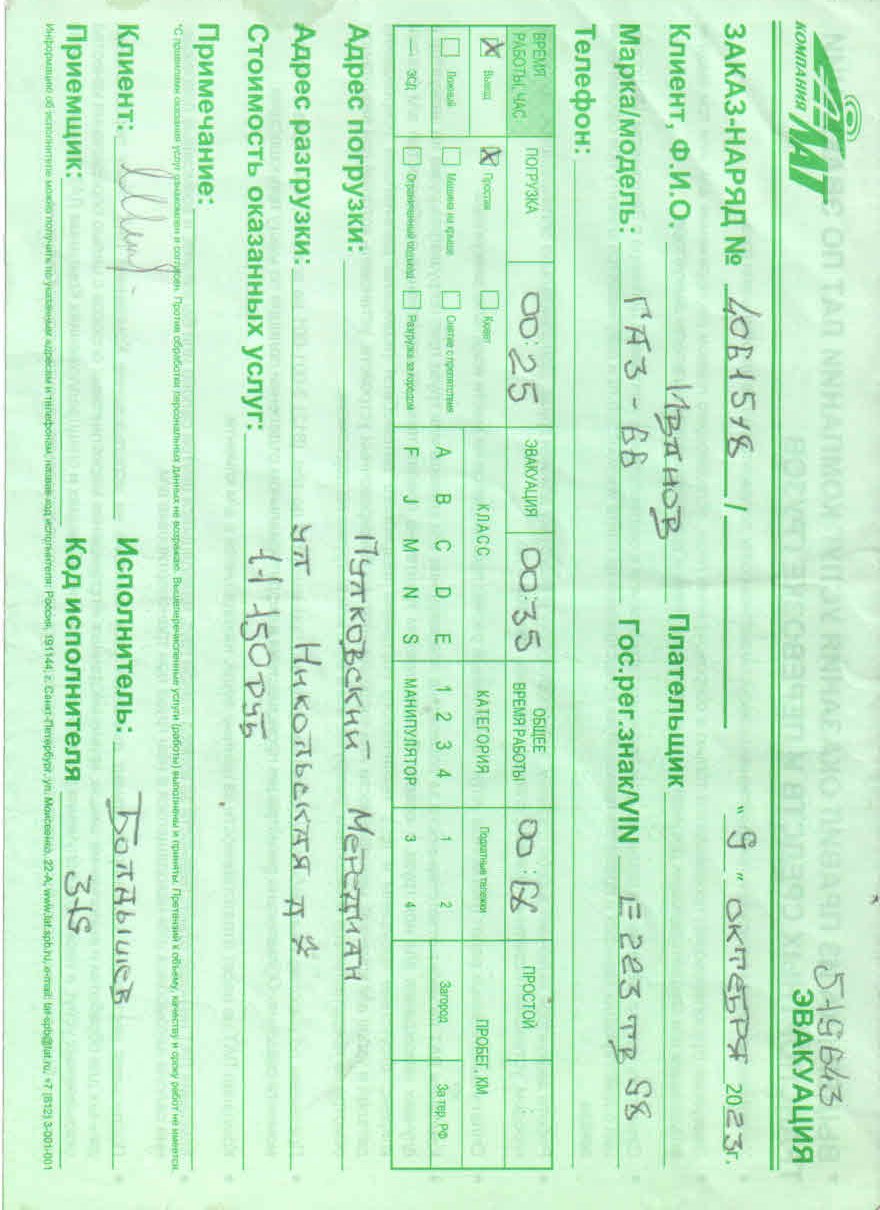 ЛАТ
КОМПАНИЯ
519643
ЭВАКУАЦИЯ
ЗАКАЗ-НАРЯД № 4061518 / " 9 " октября 2023г.
Клиент, Ф.И.О. Иванов Плательщик
Марка/модель: ГАЗ-66 Гос.рег.знак/VIN Е223ТВ 98
Телефон:
ВРЕМЯ РАБОТЫ, ЧАС ПОГРУЗКА 00:25 ЭВАКУАЦИЯ 00:35 ОБЩЕЕ ВРЕМЯ РАБОТЫ ПРОСТОЙ
X Выезд X Простая Кювет КЛАСС КАТЕГОРИЯ Подкатные тележки ПРОБЕГ, КМ
Ложный Машина на крыше Снятие с препятствия A B C D E 1 2 3 4 1 2 Загород За тер. РФ
ЗСД Ограниченный подъезд Разгрузка за городом F J M N S МАНИПУЛЯТОР 3 4
Адрес погрузки: Пулковский Меридиан
Адрес разгрузки: ул Никольская д
Стоимость оказанных услуг: 11150руб
Примечание:
*С правилами оказания услуг ознакомлен и согласен. Против обработки персональных данных не возражаю. Вышеперечисленные услуги (работы) выполнены и приняты. Претензий к объему, качеству и сроку работ не имеется.
Клиент: Исполнитель: Болдышев
Приемщик: Код исполнителя 315
Информацию об исполнителе можно получить по указанным адресам и телефонам, назвав код исполнителя: Россия, 191144, г. Санкт-Петербург, ул. Моисеенко, 22-А, www.lat.spb.ru, e-mail: lat-spb@lat.ru, +7 (812) 3-001-001